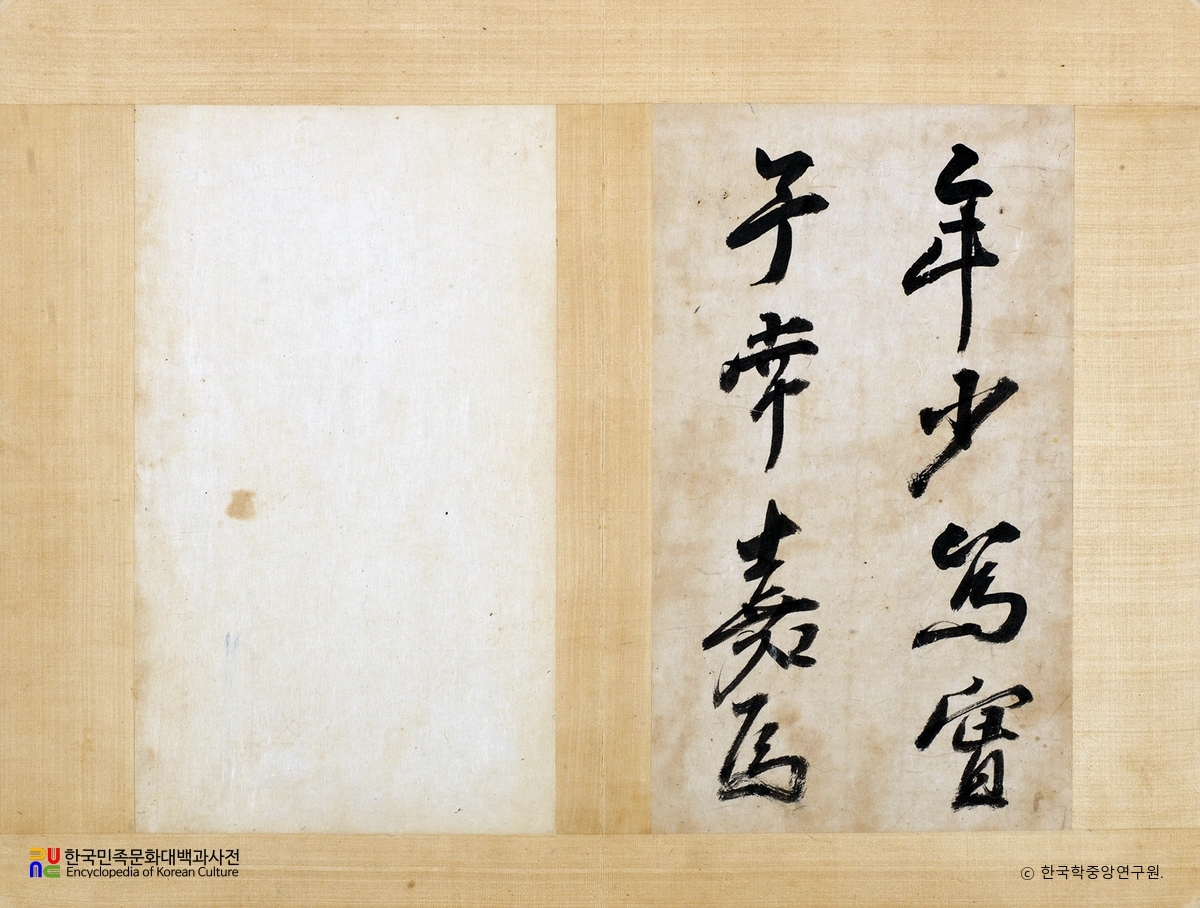 年少篤實
予常嘉焉
한국민족문화대백과사전
Encyclopedia of Korean Culture
ⓒ 한국학중앙연구원.